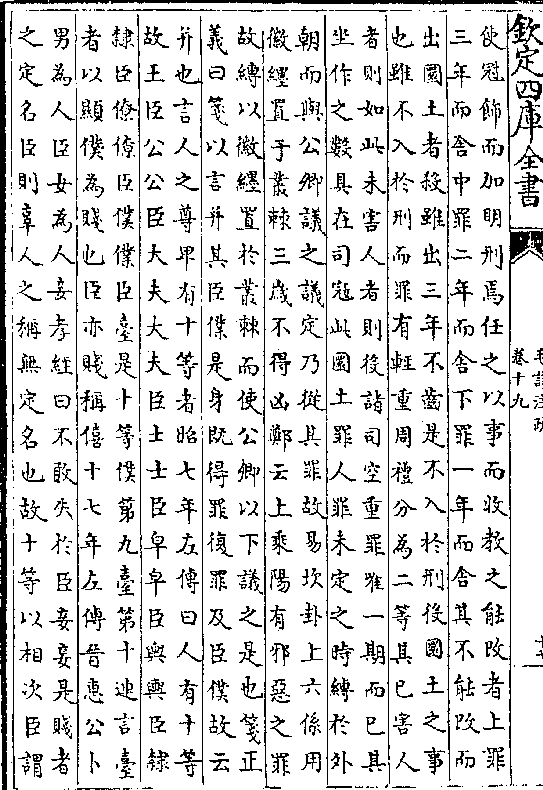 欽定四庫全書
毛詩注疏
卷十九
使冠飾而加明刑焉任之以事而收教之能改者上罪
三年而舍中罪二年而舍下罪一年而舍其不能改而
出圜土者殺雖出三年不齒是不入於刑役圜土之事
也雖不入於刑而罪有輕重周禮分為二等其已害人
者則如此未害人者則役諸司空重罪惟一期而已其
坐作之數具在司冦此圜土罪人罪未定之時縛於外
朝而與公卿議之議定乃從其罪故易坎卦上六係用
徽纆置于叢棘三歲不得凶鄭云上乘陽有邪惡之罪
故縛以徽纆置於叢棘而使公卿以下議之是也箋正
義曰箋以言并其臣僕是身既得罪復罪及臣僕故云
并也言人之尊卑有十等者昭七年左傳曰人有十等
故王臣公公臣大夫大夫臣士士臣皁皁臣輿輿臣隸
隸臣僚僚臣僕僕臣臺是十等僕第九臺第十連言臺
者以顯僕為賤也臣亦賤稱僖十七年左傳晉惠公卜
男為人臣女為人妾孝經曰不敢失於臣妾妾是賤者
之定名臣則事人之稱無定名也故十等以相次臣謂